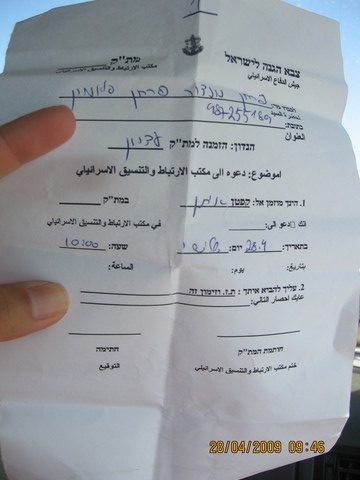 צבא הגנה לישראל
מת"ק
جيش الدفاع الاسرائيلي
مكتب الارتباط والتنسيق الاسرائيلي
987255189
العنوان
הנדון: הזמנה למת"ק עציון
الموضوع: دعوه الى مكتب الارتباط والتنسيق الاسرائيلي
1. הינך מוזמן אל: קפטן
במת"ק
في مكتب الارتباط والتنسيق الاسرائيلي
בתאריך: 28.4 יום: שלישי שעה: 10:00
بتاريخ: يوم: الساعة:
2. עליך להביא איתך: ת.ז. וזימון זה
عليك احضار التالي:
חותמת המת"ק
חתימה
ختم مكتب الارتباط والتنسيق الاسرائيلي
التوقيع
28/04/2009 09:46